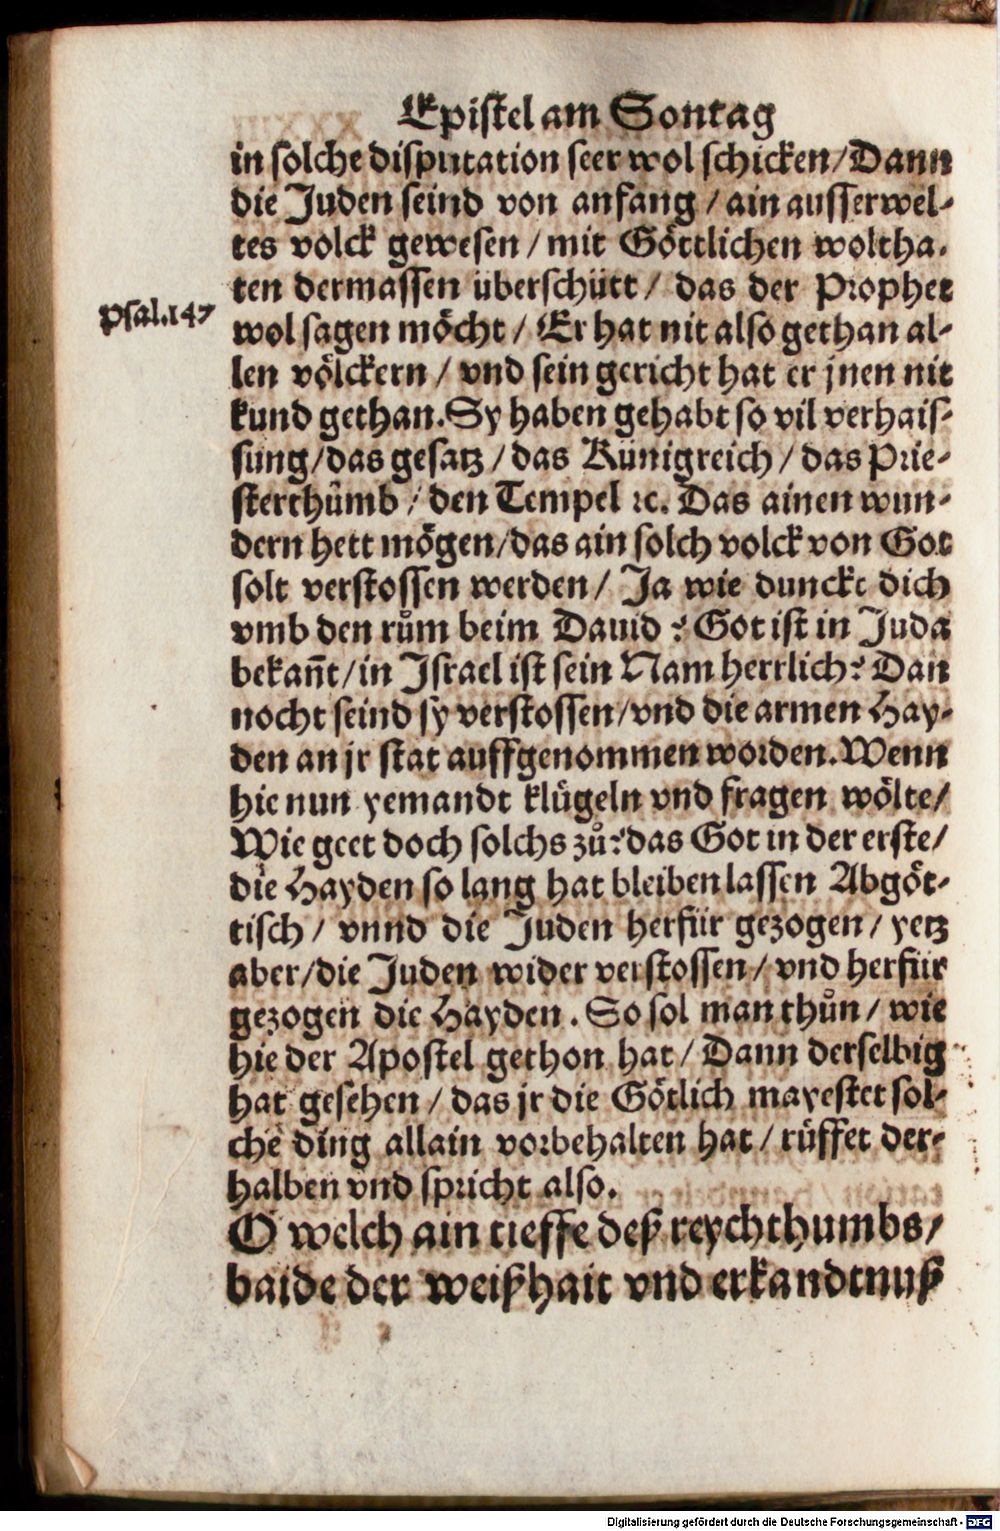 Epistel am Sontag
in solche disputation seer wol schicken/Dann
die Juden seind von anfang / ain ausserwel-
tes volck gewesen / mit Göttlichen woltha-
ten dermassen überschütt / das der Prophet
Psal.147
wol sagen möcht / Er hat nit also gethan al-
len völckern / vnd sein gericht hat er jnen nit
kund gethan. Sy haben gehabt so vil verhais-
sung/das gesatz / das Künigreich / das Prie-
sterthůmb / den Tempel ꝛc. Das ainen wun-
dern hett mögen/das ain solch volck von Got
solt verstossen werden / Ja wie dunckt dich
vmb den rům beim Dauid? Got ist in Juda
bekañt/in Israel ist sein Nam herrlich? Dan
nocht seind sy verstossen/vnd die armen Hay-
den an jr stat auffgenommen worden. Wenn
hie nun yemandt klügeln vnd fragen wölte/
Wie geet doch solchs zů? das Got in der erste/
die Hayden so lang hat bleiben lassen Abgöt-
tisch / vnnd die Juden herfür gezogen / yetz
aber/die Juden wider verstossen / vnd herfür
gezogen die Hayden. So sol man thůn / wie
hie der Apostel gethon hat / Dann derselbig
hat gesehen / das jr die Götlich mayestet sol-
che ding allain vorbehalten hat / rüffet der-
halben vnd spricht also.
O welch ain tieffe deß reychthumbs/
baide der weißhait vnd erkandtnuß
Digitalisierung gefördert durch die Deutsche Forschungsgemeinschaft - DFG